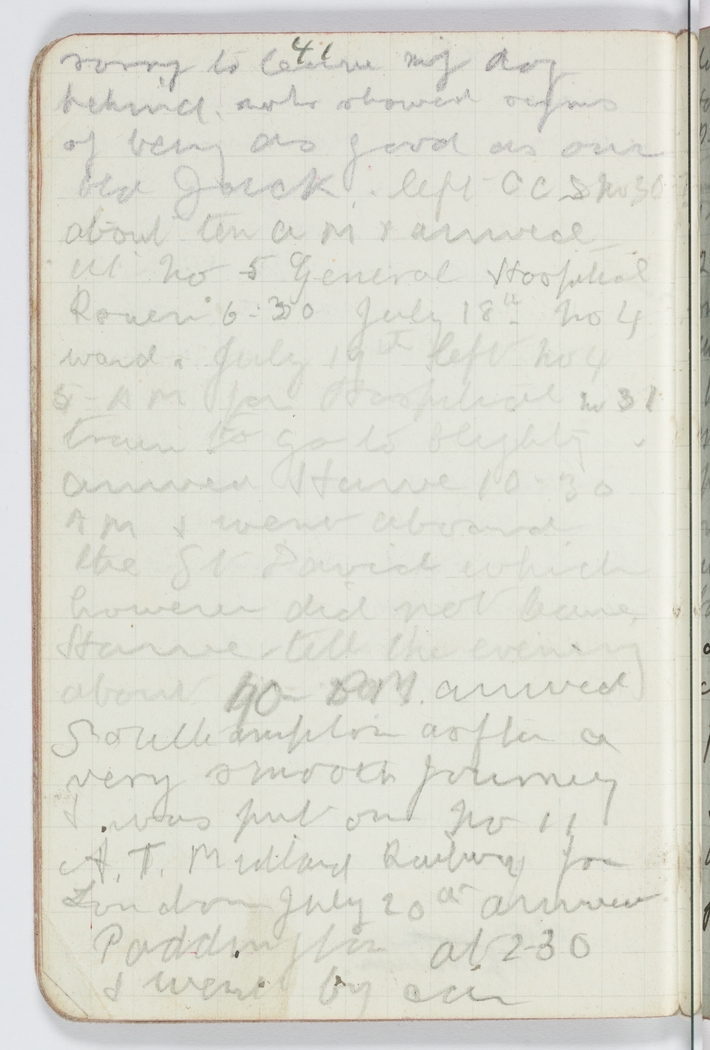 41
sorry to leave my dog
behind. who showed signs
of being as good as our
old Jack. left C C S No 30
about ten A M & arrived
at No 5 General Hospital
Rouen 6-30 July 18th No 4
ward. July 19th left No 4
5-AM for Hospital no 31
train to go to blighty
arrived Havre 10-30
AM & went aboard
the St David which
however did not leave
Havre till the evening
about 10 P.M. arrived
Southampton after a
very smooth journey
& was put on No 11
A.T. Midland Railway for
London July 20th arrived
Paddington at 2-30
& went by car